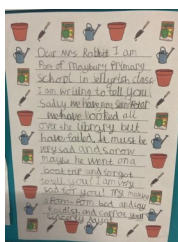 Dear Mrs Rabbit I am
from Maybury Primary
school in Jellyfish class
I am writing to tell you
Sadly we have not seen Peter
we have looked all
over the library but
have failed. It must be
very sad and sorrow
maybe he went on a
boat trip and forgot
to tell you! I am very
sad for you! Try making
a Pom-Pom bed and
radish and carrot stew